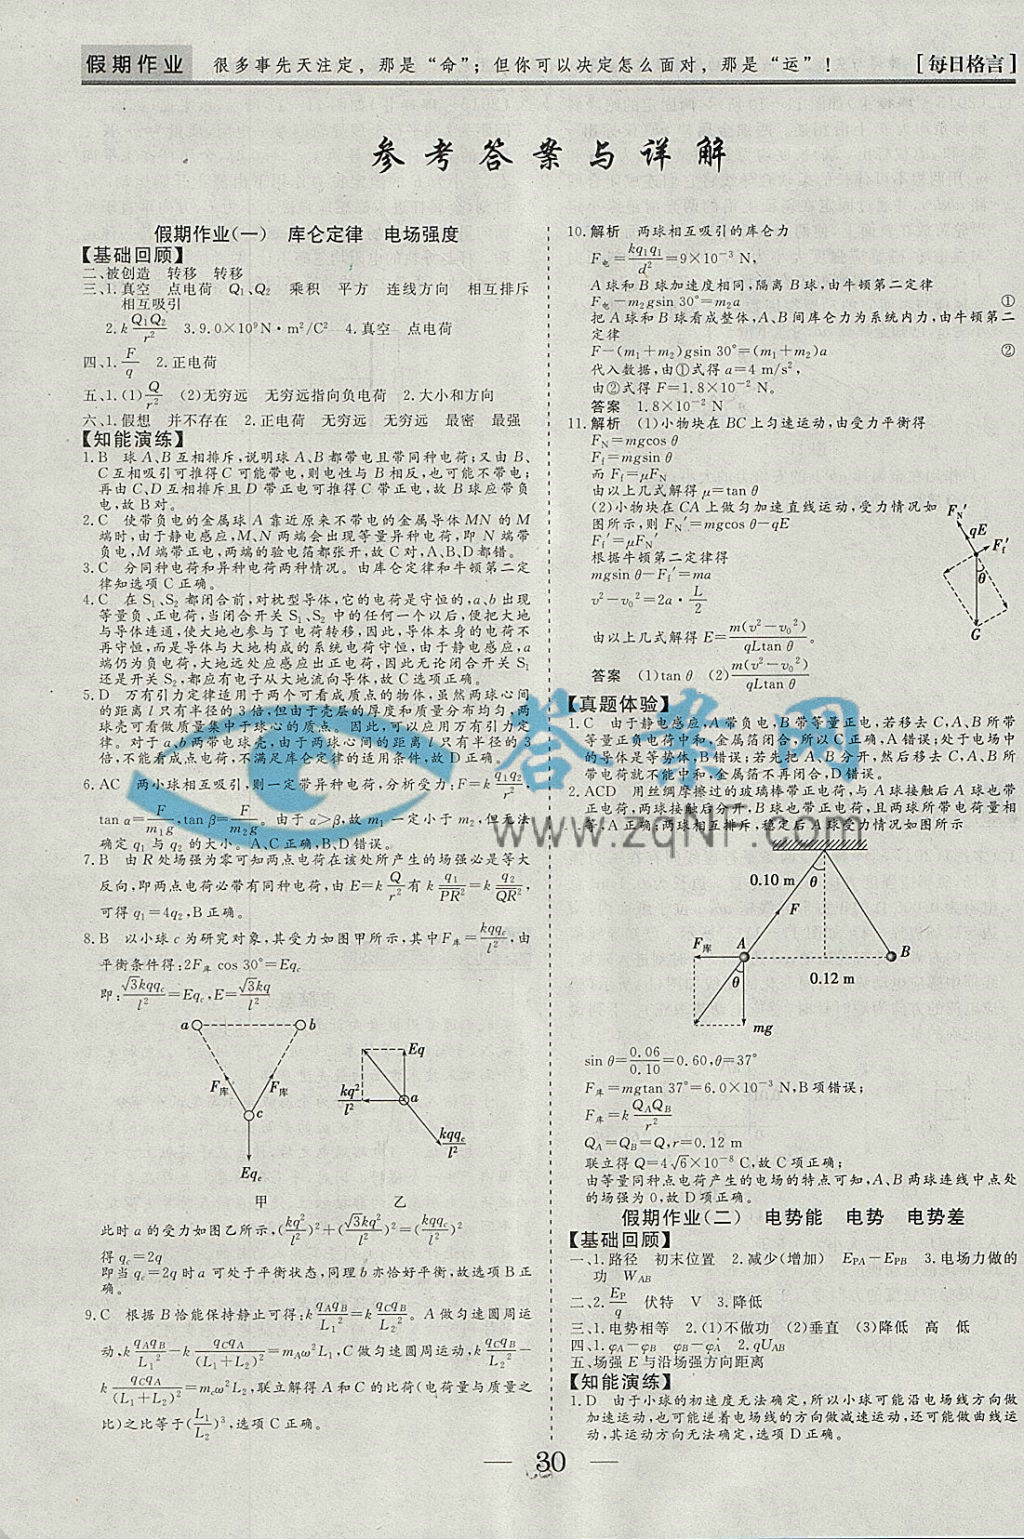 假期作业 很多事先天注定，那是“命”；但你可以决定怎么面对，那是“运”！ [每日格言]
参考答案与详解
假期作业(一) 库仑定律 电场强度
【基础回顾】
二、被创造 转移 转移
三、1.真空 点电荷 Q₁、Q₂ 乘积 平方 连线方向 相互排斥
相互吸引
2.k Q₁Q₂/r² 3.9.0×10⁹N·m²/C² 4.真空 点电荷
四、1.F/q 2.正电荷
五、1.(1)Q/r² (2)无穷远 无穷远指向负电荷 2.大小和方向
六、1.假想 并不存在 2.正电荷 无穷远 无穷远 最密 最强
【知能演练】
1.B 球A、B互相排斥，说明球A、B都带电且带同种电荷；又由B、
C互相吸引可推得C可能带电，则电性与B相反，也可能不带电；
再由C、D互相排斥且D带正电可推得C带正电，故B球应带负
电，故B对。
2.C 使带负电的金属球A靠近原来不带电的金属导体MN的M
端时，由于静电感应，M、N两端会出现等量异种电荷，即N端带
负电，M端带正电，两端的验电箔都张开，故C对，A、B、D都错。
3.C 分同种电荷和异种电荷两种情况。由库仑定律和牛顿第二定
律知选项C正确。
4.C 在S₁、S₂都闭合前，对枕型导体，它的电荷是守恒的，a、b出现
等量负、正电荷，当闭合开关S₁、S₂中的任何一个以后，便把大地
与导体连通，使大地也参与了电荷转移，因此，导体本身的电荷不
再守恒，而是导体与大地构成的系统电荷守恒，由于静电感应，a
端仍为负电荷，大地远处应感应出正电荷，因此无论闭合开关S₁
还是开关S₂，都应有电子从大地流向导体，故C选项正确。
5.D 万有引力定律适用于两个可看成质点的物体，虽然两球心间
的距离l只有半径的3倍，但由于壳层的厚度和质量分布均匀，两
球壳可看做质量集中于球心的质点。因此，可以应用万有引力定
律。对于a、b两带电球壳，由于两球心间的距离l只有半径的3
倍，不能看成点电荷，不满足库仑定律的适用条件，故D正确。
6.AC 两小球相互吸引，则一定带异种电荷，分析受力，F=k q₁q₂/r²，
tanα=F/m₁g，tanβ=F/m₂g。由于α>β，故m₁一定小于m₂，但无法
确定q₁与q₂的大小。A、C正确，B、D错误。
7.B 由R处场强为零可知两点电荷在该处所产生的场强必是等大
反向，即两点电荷必带有同种电荷，由E=k Q/r²有k q₁/PR²=k q₂/QR²，
可得q₁=4q₂，B正确。
8.B 以小球c为研究对象，其受力如图甲所示，其中F库=kqq_c/l²，由
平衡条件得：2F库cos30°=Eq_c
即：√3kqq_c/l²=Eq_c，E=√3kq/l²
a b
F库 F库
c
Eq_c
甲
Eq
kq²/l²
a
kqq_c/l²
乙
此时a的受力如图乙所示，(kq²/l²)²+(√3kq²/l²)²=(kqq_c/l²)²
得q_c=2q
即当q_c=2q时a可处于平衡状态，同理b亦恰好平衡，故选项B正
确。
9.C 根据B恰能保持静止可得：k q_Aq_B/L₁²=k q_Cq_B/L₂²。A做匀速圆周运
动，k q_Aq_B/L₁²−k q_Cq_A/(L₁+L₂)²=m_Aω²L₁，C做匀速圆周运动，k q_Cq_B/L₂²−
k q_Cq_A/(L₁+L₂)²=m_cω²L₂，联立解得A和C的比荷(电荷量与质量之
比)之比等于(L₁/L₂)³，选项C正确。
10.解析 两球相互吸引的库仑力
F电=kq₁q₁/d²=9×10⁻³ N，
A球和B球加速度相同，隔离B球，由牛顿第二定律
F电−m₂gsin30°=m₂a ①
把A球和B球看成整体，A、B间库仑力为系统内力，由牛顿第二
定律
F−(m₁+m₂)gsin30°=(m₁+m₂)a ②
代入数据，由①式得a=4 m/s²，
由②式得F=1.8×10⁻² N。
答案 1.8×10⁻² N
11.解析 (1)小物块在BC上匀速运动，由受力平衡得
F_N=mgcosθ
F_f=mgsinθ
而F_f=μF_N
由以上几式解得μ=tanθ
(2)小物块在CA上做匀加速直线运动，受力情况如
图所示，则F_N′=mgcosθ−qE
F_f′=μF_N′
根据牛顿第二定律得
mgsinθ−F_f′=ma
v²−v₀²=2a·L/2
由以上几式解得E=m(v²−v₀²)/qLtanθ。
答案 (1)tanθ (2)m(v²−v₀²)/qLtanθ
F_N′
qE
F_f′
θ
G
【真题体验】
1.C 由于静电感应，A带负电，B带等量正电，若移去C，A、B所带
等量正负电荷中和，金属箔闭合，所以C正确，A错误；处于电场中
的导体是等势体，B错误；若先把A、B分开，然后移去C，A、B所
带电荷就不能中和，金属箔不再闭合，D错误。
2.ACD 用丝绸摩擦过的玻璃棒带正电荷，与A球接触后A球也带
正电荷，两球接触后分开，B球也带正电荷，且两球所带电荷量相
等，A正确；两球相互排斥，稳定后A球受力情况如图所示
0.10 m θ
F
F库 A B
θ 0.12 m
mg
sinθ=0.06/0.10=0.60，θ=37°
F库=mgtan37°=6.0×10⁻³ N，B项错误；
F库=k Q_AQ_B/r²
Q_A=Q_B=Q，r=0.12 m
联立得Q=4√6×10⁻⁸ C，故C项正确；
由等量同种点电荷产生的电场的特点可知，A、B两球连线中点处
的场强为0，故D项正确。
假期作业(二) 电势能 电势 电势差
【基础回顾】
一、1.路径 初末位置 2.减少(增加) E_PA−E_PB 3.电场力做的
功 W_AB
二、2.E_P/q 伏特 V 3.降低
三、1.电势相等 2.(1)不做功 (2)垂直 (3)降低 高 低
四、1.φ_A−φ_B φ_B−φ_A 2.qU_AB
五、场强E与沿场强方向距离
【知能演练】
1.D 由于小球的初速度无法确定，所以小球可能沿电场线方向做
加速运动，也可能逆着电场线的方向做减速运动，还可能做曲线运
动，其运动方向无法确定，选项D正确。
30
答案网
www.zqNF.com